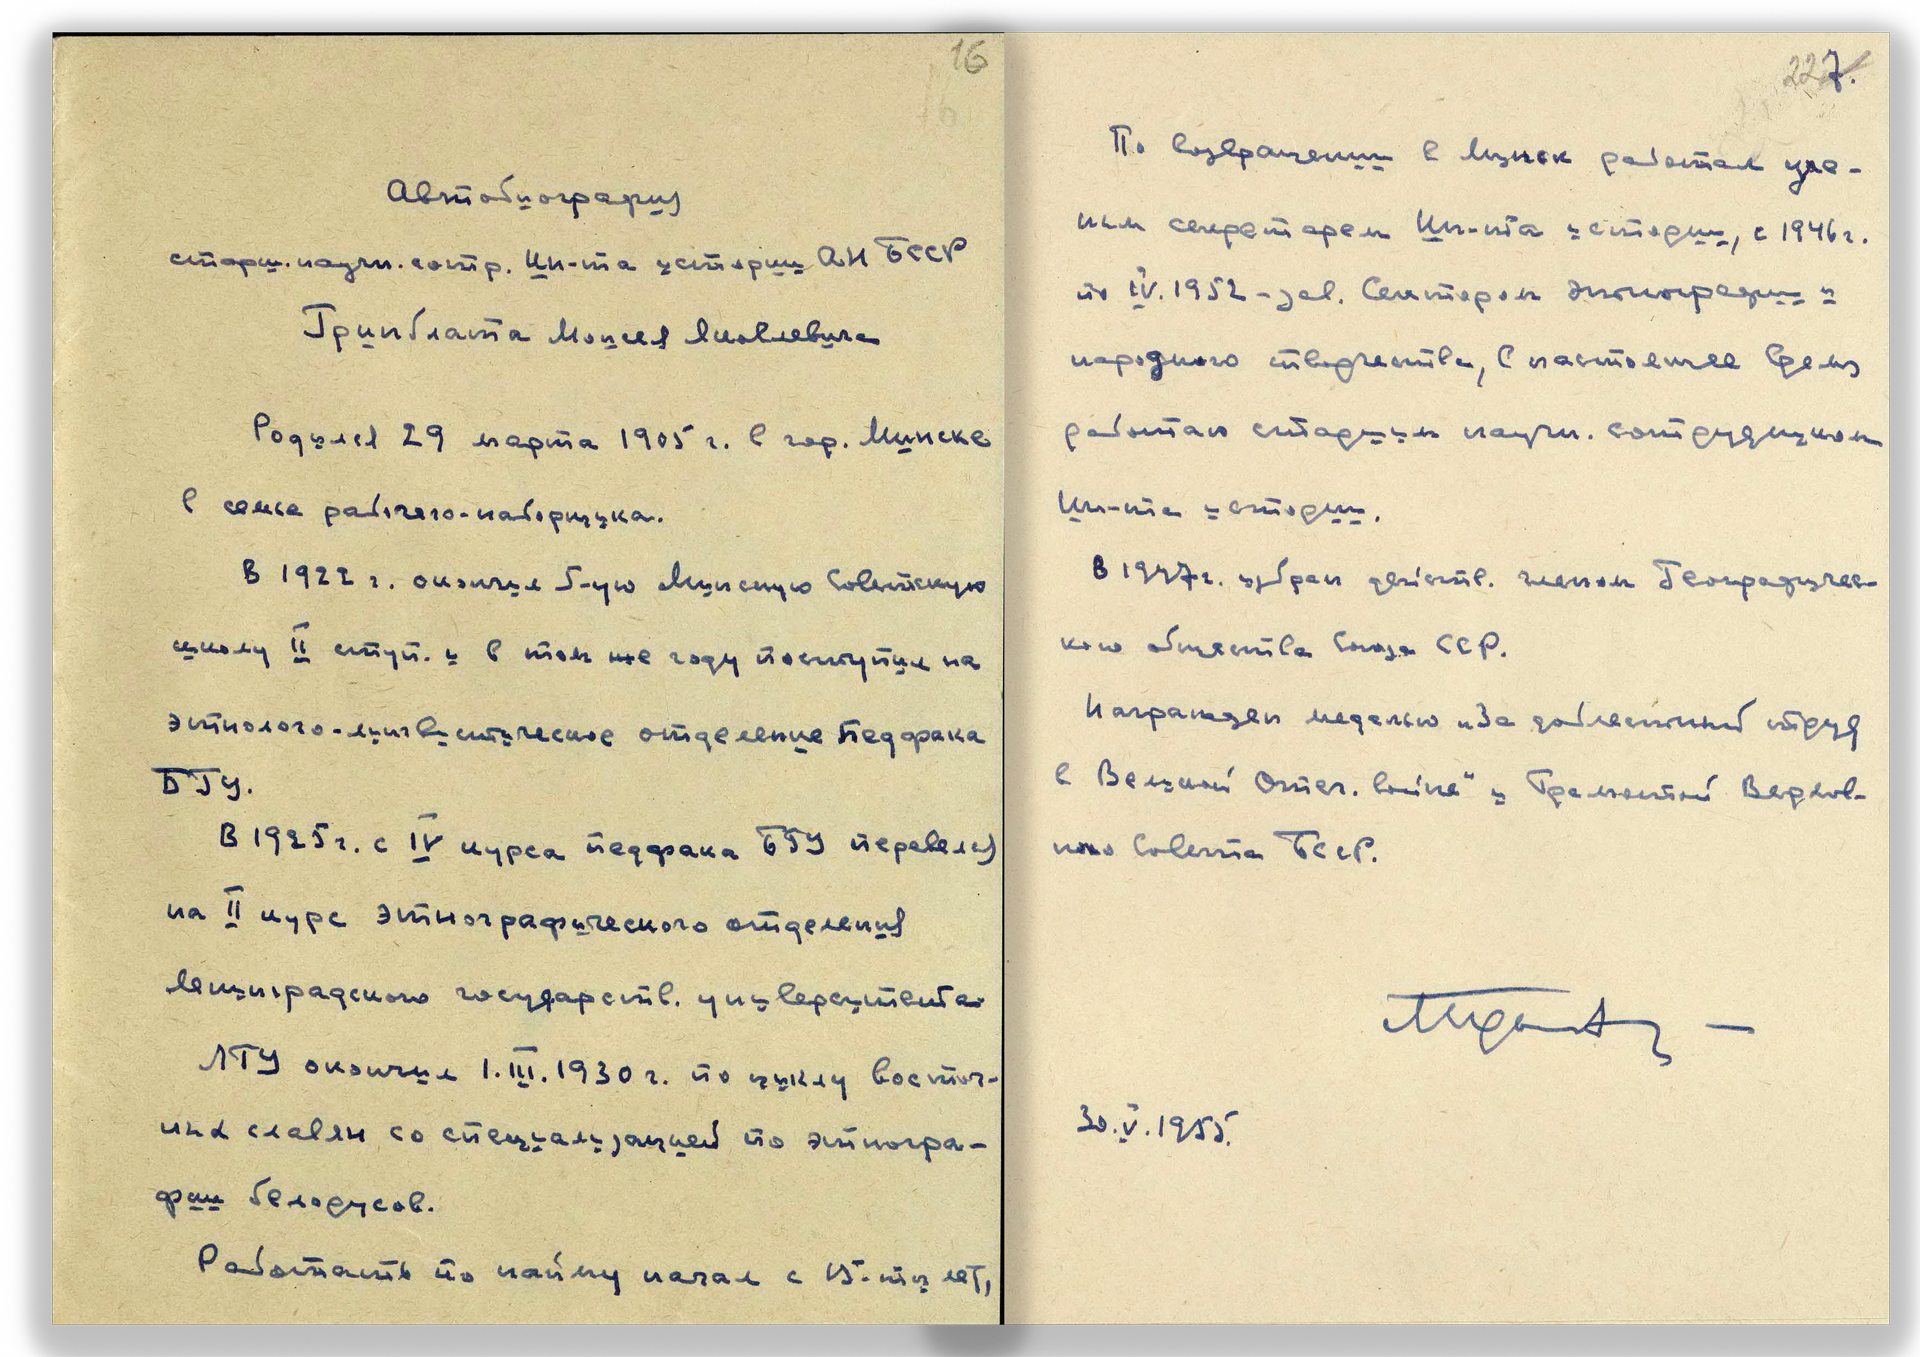 16
Автобиография
старш. научн. сотр. Ин-та истории АН БССР
Гринблата Моисея Яковлевича
Родился 29 марта 1905 г. в гор. Минске
в семье рабочего-наборщика.
В 1922 г. окончил 5-ую Минскую Советскую
школу II ступ. и в том же году поступил на
этнолого-лингвистическое отделение Педфака
БГУ.
В 1925 г. с IV курса педфака БГУ перевелся
на II курс этнографического отделения
Ленинградского государств. университета.
ЛГУ окончил 1.III.1930 г. по циклу восточ-
ных славян со специализацией по этногра-
фии белорусов.
Работать по найму начал с 15-ти лет,
227.
По возвращении в Минск работал уче-
ным секретарем Ин-та истории, с 1946 г.
по IV.1952 - зав. Сектором этнографии и
народного творчества, в настоящее время
работаю старшим научн. сотрудником
Ин-та истории.
В 1947 г. избран действ. членом Географичес-
кого общества Союза ССР.
Награжден медалью „За доблестный труд
в Великой Отеч. войне" и Грамотой Верхов-
ного Совета БССР.
30.V.1955.